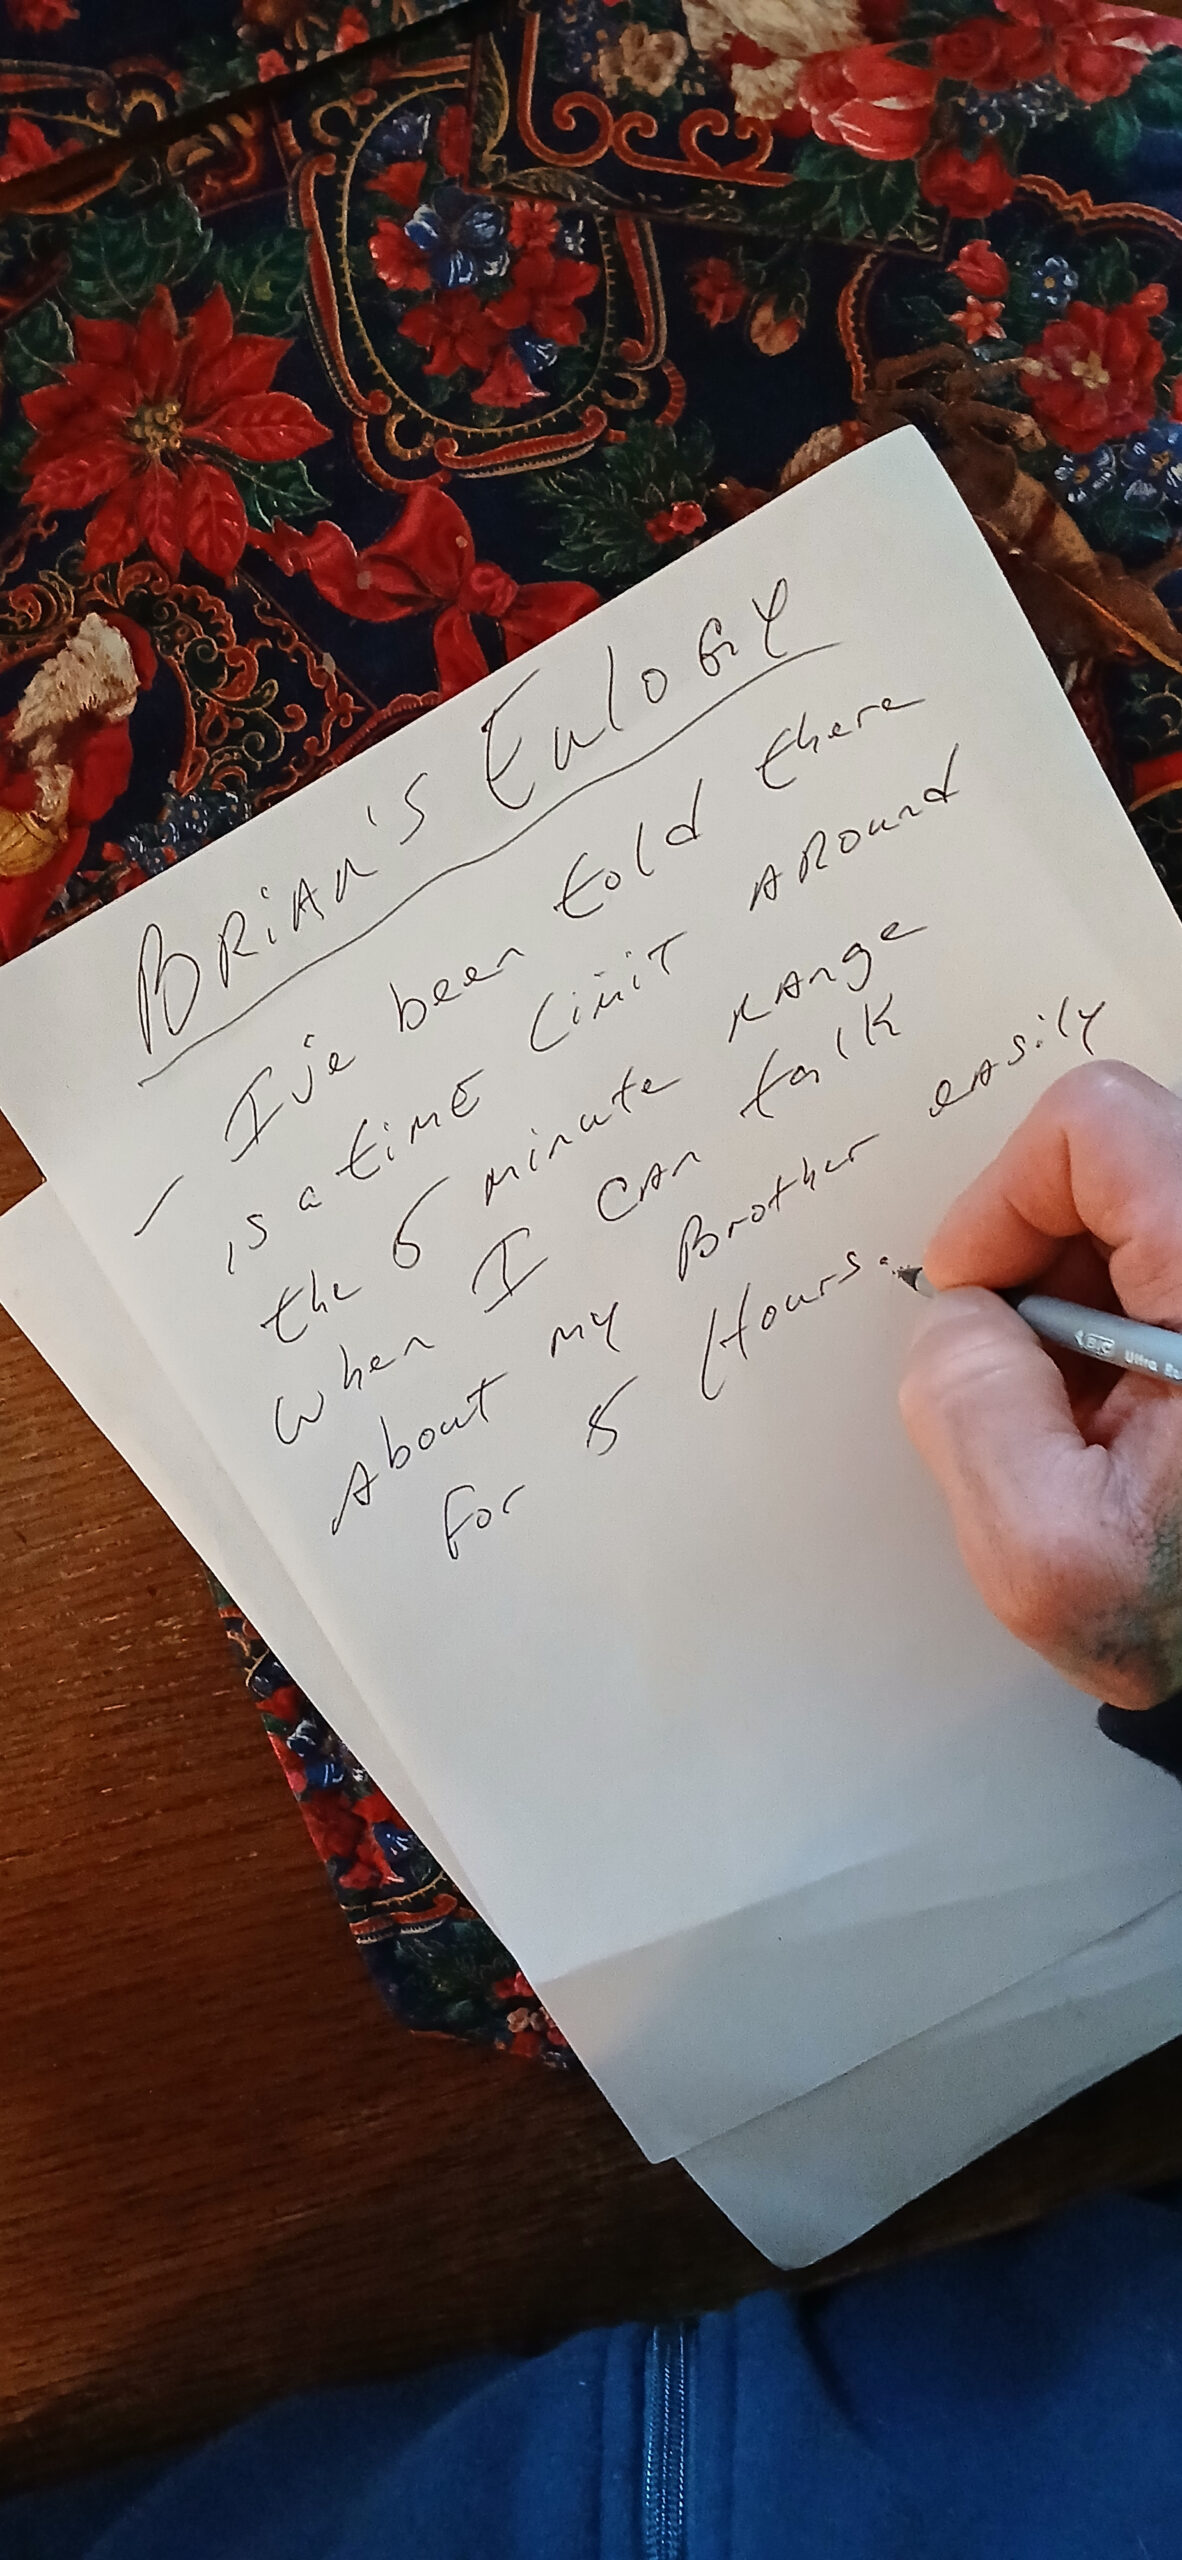 BRiAn's EuloGY
- I've been told there
is a time limit ARound
the 5 minute range
when I CAn talk
About my Brother easily
For 5 Hours.
BIC Ultra